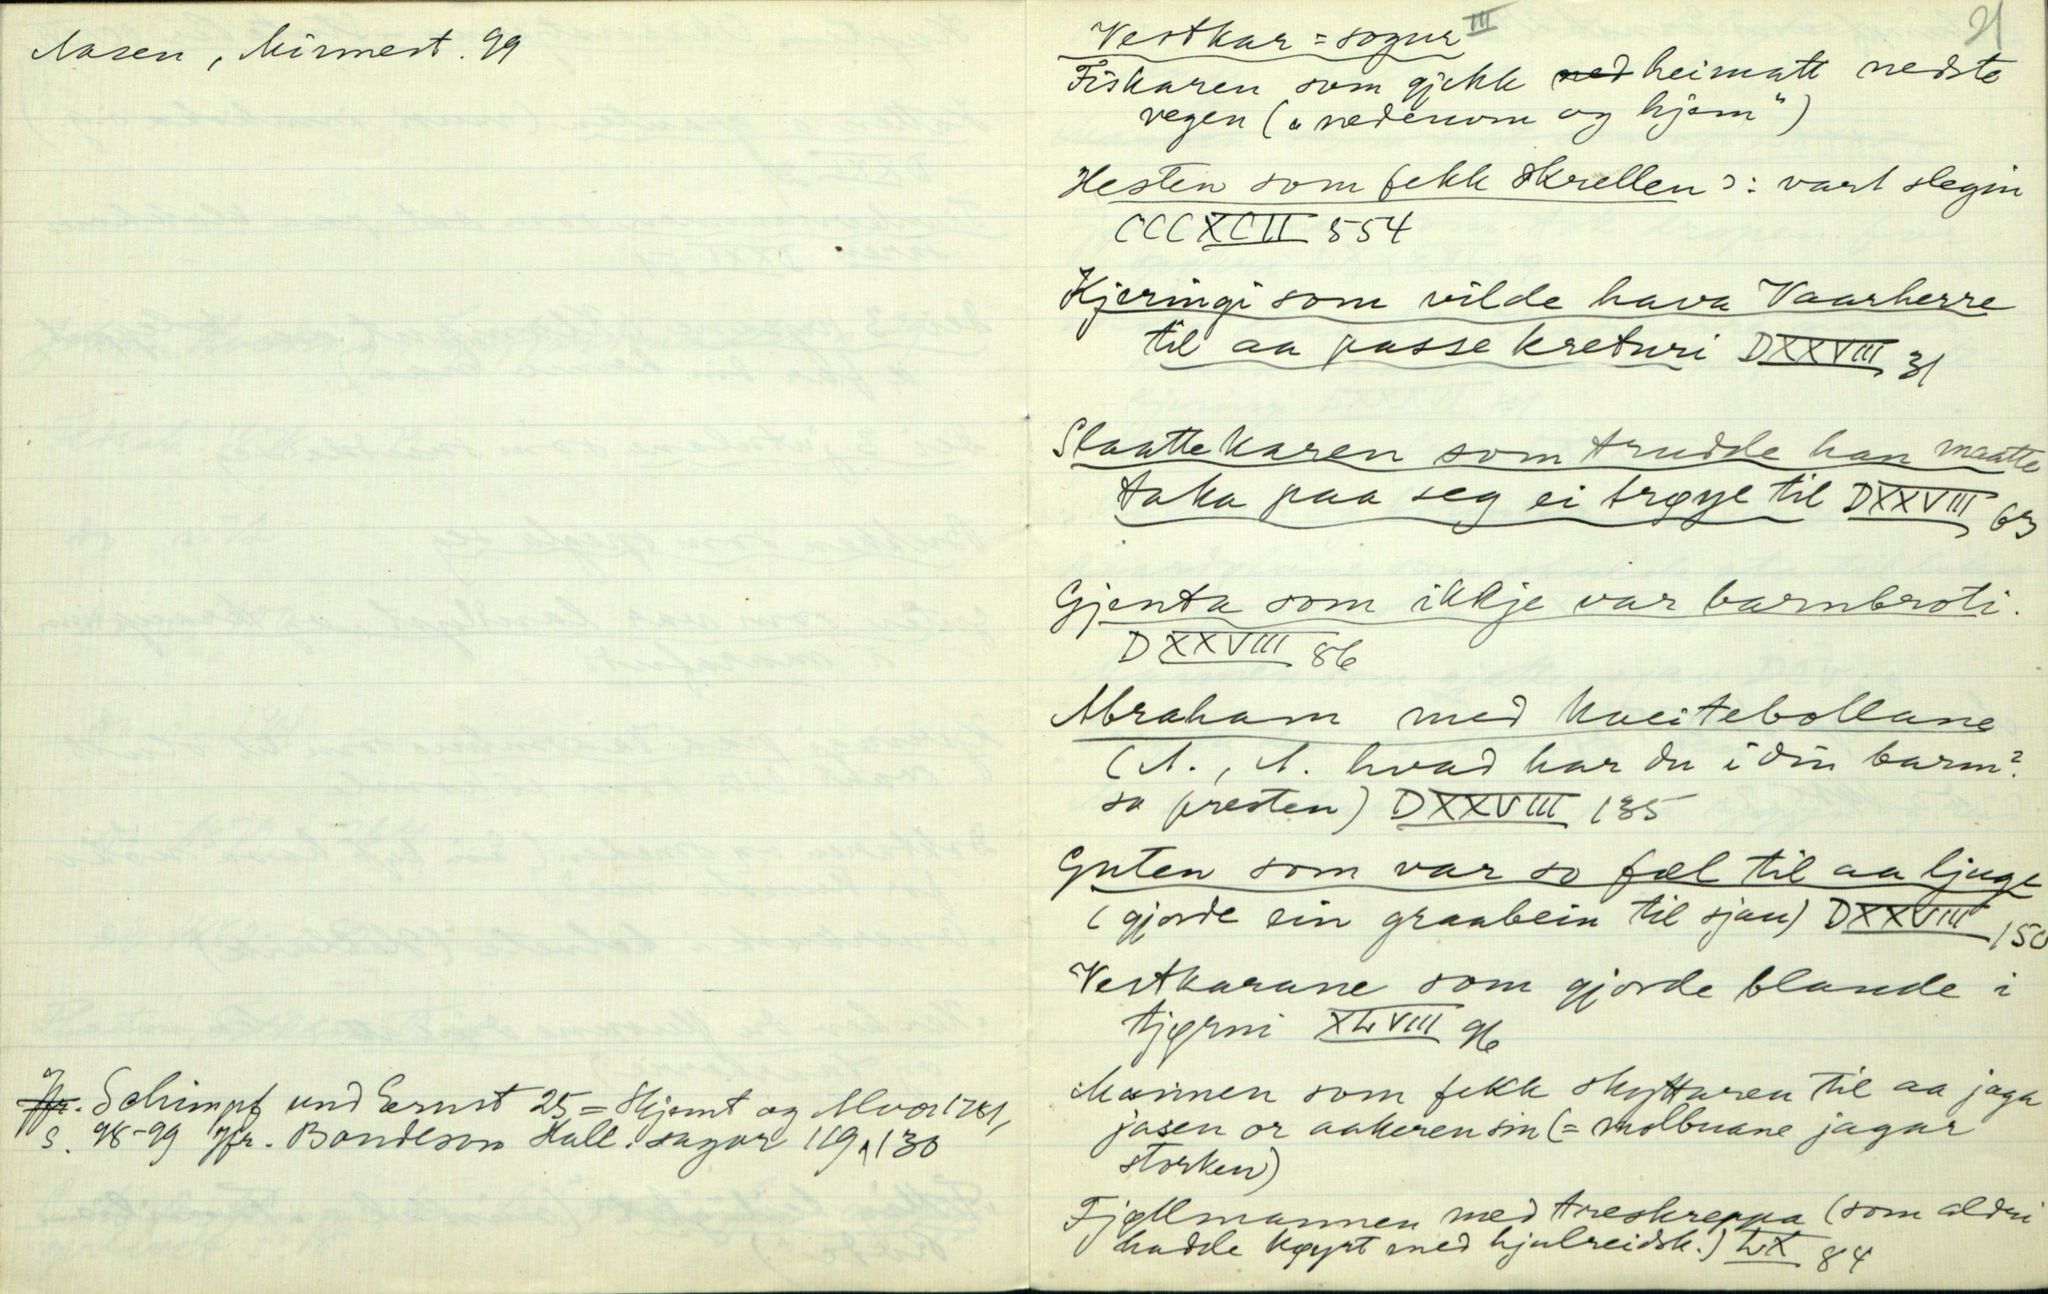 Aasen, Minnest. 99
Jfr. Schimpf und Ernst 25 = Skjemt og Alvor 1781,
s. 98-99 jfr. Bondeson Hall. sagor 119, 130
Vestkar = sogur III
21
Fiskaren som gjekk ned heimatt nedste
vegen („nedenom og hjem“)
Hesten som fekk skrellen ɔ: vart slegin
CCCXCII 554
Kjeringi som vilde hava Vaarherre
til aa passe kreturi DXXVIII 31
Slaattekaren som trudde han maatte
taka paa seg ei trøye til DXXVIII 63
Gjenta som ikkje var barnbroti.
DXXVIII 86
Abraham med kveitebollane
(A., A. hvad har du i din barm?
sa presten) DXXVIII 135
Guten som var so fæl til aa ljuge
(gjorde ein graabein til sjau) DXXVIII 150
Vestkarane som gjorde blande i
tjørni XLVIII 96
Mannen som fekk skyttaren til aa jaga
jasen or aakeren sin (= molbuane jagar
storken)
Fjellmannen med treskreppa (som aldri
hadde køyrt med hjulreidsk.) LX 84